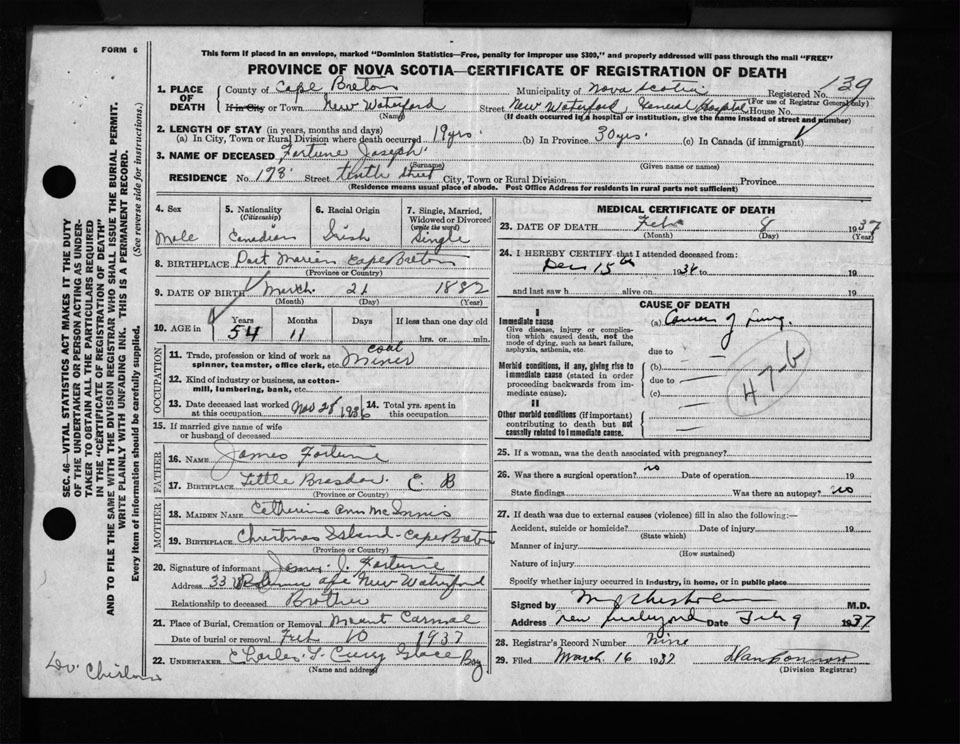 FORM 6
This form if placed in an envelope, marked "Dominion Statistics—Free, penalty for improper use $300," and properly addressed will pass through the mail "FREE"
PROVINCE OF NOVA SCOTIA—CERTIFICATE OF REGISTRATION OF DEATH
139
1. PLACE OF DEATH
County of Cape Breton Municipality of Nova Scotia Registered No.
(For use of Registrar General only)
If in City or Town New Waterford Street New Waterford General Hospital House No.
(Name) (If death occurred in a hospital or institution, give the name instead of street and number)
2. LENGTH OF STAY (in years, months and days)
(a) In City, Town or Rural Division where death occurred 19 yrs. (b) In Province 30 yrs. (c) In Canada (if immigrant)
3. NAME OF DECEASED Fortune Joseph
(Surname) (Given name or names)
RESIDENCE No. 178 Street tenth street City, Town or Rural Division Province
(Residence means usual place of abode. Post Office Address for residents in rural parts not sufficient)
4. Sex
Male
5. Nationality (Citizenship)
Canadian
6. Racial Origin
Irish
7. Single, Married, Widowed or Divorced (write the word)
Single
8. BIRTHPLACE Port Marien Cape Breton
(Province or Country)
9. DATE OF BIRTH March 21 1882
(Month) (Day) (Year)
10. AGE in
Years Months Days If less than one day old
54 11 hrs. or min.
OCCUPATION
11. Trade, profession or kind of work as spinner, teamster, office clerk, etc. coal Miner
12. Kind of industry or business, as cotton-mill, lumbering, bank, etc.
13. Date deceased last worked at this occupation Nov 28 1936
14. Total yrs. spent in this occupation
15. If married give name of wife or husband of deceased
FATHER
16. Name James Fortune
17. Birthplace Little Brasdor C B
(Province or Country)
MOTHER
18. Maiden Name Catherine Ann McInnis
19. Birthplace Christmas Island - Cape Breton
(Province or Country)
20. Signature of informant James J. Fortune
Address 33 ave New Waterford
Relationship to deceased Brother
21. Place of Burial, Cremation or Removal Mount Carmal
Date of burial or removal Feb 10 1937
22. UNDERTAKER Charles S. Curry Glace Bay
(Name and address)
MEDICAL CERTIFICATE OF DEATH
23. DATE OF DEATH Feb 8 1937
(Month) (Day) (Year)
24. I HEREBY CERTIFY that I attended deceased from:
Dec 15th 1936 to 19
and last saw h alive on 19
CAUSE OF DEATH
I
Immediate cause
Give disease, injury or complication which caused death, not the mode of dying, such as heart failure, asphyxia, asthenia, etc.
(a) Cancer of Lung.
due to
Morbid conditions, if any, giving rise to immediate cause (stated in order proceeding backwards from immediate cause).
(b)
due to
(c)
47-b
II
Other morbid conditions (if important) contributing to death but not causally related to immediate cause.
25. If a woman, was the death associated with pregnancy?
26. Was there a surgical operation? no Date of operation 19
State findings Was there an autopsy? no
27. If death was due to external causes (violence) fill in also the following:—
Accident, suicide or homicide? Date of injury 19
(State which)
Manner of injury
(How sustained)
Nature of injury
Specify whether injury occurred in industry, in home, or in public place
Signed by M J Chisholm M.D.
Address New Waterford Date Feb 9 1937
28. Registrar's Record Number Nine
29. Filed March 16 1937
(Division Registrar)
SEC. 46—VITAL STATISTICS ACT MAKES IT THE DUTY
OF THE UNDERTAKER OR PERSON ACTING AS UNDER-
TAKER TO OBTAIN ALL THE PARTICULARS REQUIRED
IN THE "CERTIFICATE OF REGISTRATION OF DEATH"
AND TO FILE THE SAME WITH THE DIVISION REGISTRAR WHO SHALL ISSUE THE BURIAL PERMIT.
WRITE PLAINLY WITH UNFADING INK. THIS IS A PERMANENT RECORD.
Every item of information should be carefully supplied. (See reverse side for instructions.)
Dr. Chisholm